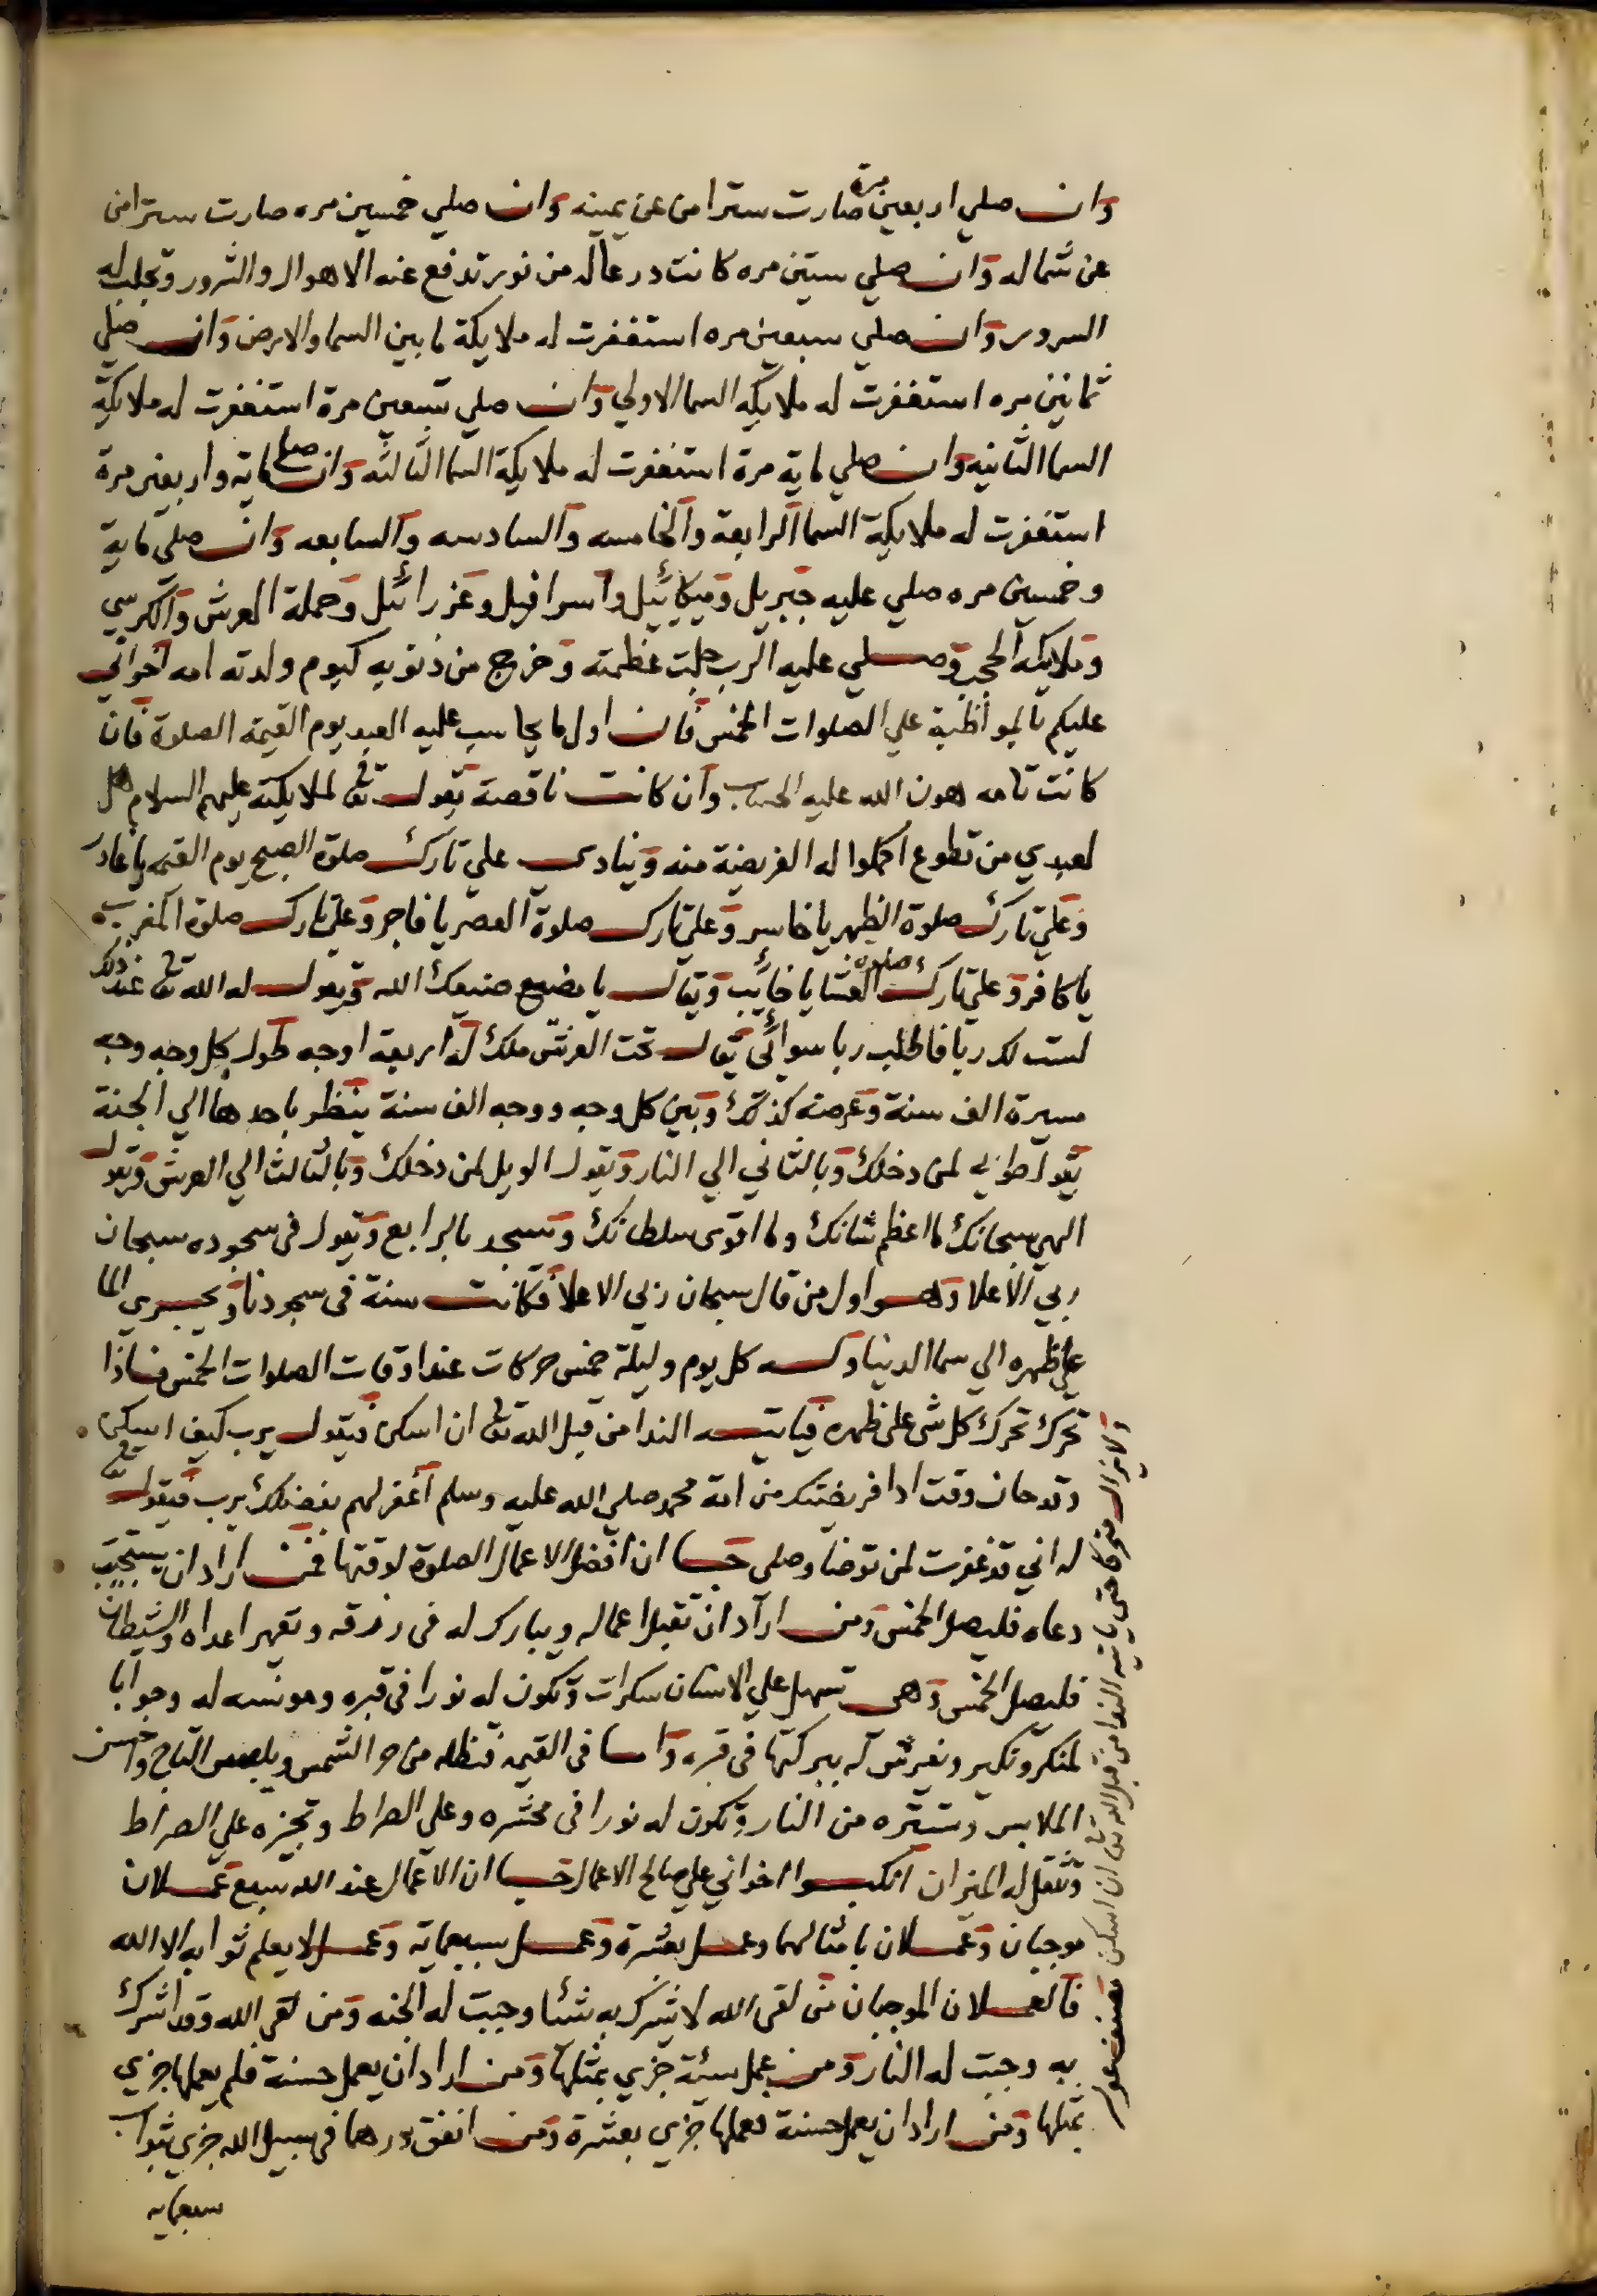 وان صلي اربعين مرة صارت سترا من عن يمينه وان صلي خمسين مره صارت سترا من
عن شماله وان صلي ستين مره كانت درعا له من نور تدفع عنه الاهوال والشرور وتجلب له
السرور وان صلي سبعين مره استغفرت له ملايكة ما بين السما والارض وان صلي
ثمانين مره استغفرت له ملايكه السما الاولي وان صلي تسعين مرة استغفرت له ملايكة
السما الثانيه وان صلي ماية مرة استغفرت له ملايكة السما الثالثه وان صلي ماية واربعين مرة
استغفرت له ملايكة السما الرابعة والخامسه والسادسه والسابعه وان صلي ماية
وخمسين مره صلي عليه جبريل وميكائيل واسرافيل وعزرائيل وحملة العرش والكرسي
وملايكه الحجب وصلي عليه الرب جلت عظمته وخرج من ذنوبه كيوم ولدته امه اخواني
عليكم بالمواظبة علي الصلوات الخمس فان اول ما يحاسب عليه العبد يوم القيمة الصلوة فان
كانت تامه هون الله عليه الحساب وان كانت ناقصة يقول تعا لملايكته عليهم السلام هل
لعبدي من تطوع اكملوا له الفريضة منه وينادى علي تارك صلوة الصبح يوم القيمه يا غادر
وعلي تارك صلوة الظهر يا خاسر وعلي تارك صلوة العصر يا فاجر وعلي تارك صلوة المغرب
يا كافر وعلي تارك صلوة العشا يا خايب ويقال يا مضيع ضيعك الله ويقول له الله تعا عند ذلك
لست لك ربا فاطلب ربا سوائي يقال تحت العرش ملك له اربعة اوجه طول كل وجه وجه
مسيرة الف سنة وعرضه كذلك وبين كل وجه ووجه الف سنة ينظر باحدها الي الجنة
يقول طوبى لمن دخلك وبالثاني الي النار ويقول الويل لمن دخلك وبالثالث الي العرش ويقول
الهي سبحانك ما اعظم شانك وما اقوى سلطانك ويسجد بالرابع ويقول في سجوده سبحان
ربي الاعلا وهو اول من قال سبحان ربي الاعلا فكانت سنة في سجودنا ويجري الما
علي ظهره الي سما الدنيا وله كل يوم وليلة خمس حركات عند اوقات الصلوات الخمس فاذا
تحرك تحرك كل شي على ظهره فياتيه الندا من قبل الله تعا ان اسكن فيقول يرب كيف اسكن
وقد حان وقت ادا فريضتك من امة محمد صلي الله عليه وسلم اغفر لهم بفضلك يرب فيقول تعا
له اني قد غفرت لمن توضا وصلى حبا ان افضل الاعمال الصلوة لوقتها فمن اراد ان يستجب
دعاه فليصل الخمس ومن اراد ان تقبل اعماله ويبارك له في رزقه وتقهر اعداه والشيطان
فليصل الخمس وهي تسهل علي الانسان سكرات وتكون له نورا في قبره ومونسه له وجوابا
لمنكر ونكير وتفرش له ببركتها في قبره واما في القيمة فتظله من حر الشمس ويلبس التاج واحسن
الملابس وتستره من النار وتكون له نورا في محشره وعلي الصراط وتجيزه علي الصراط
وتثقل له الميزان انكبوا اخواني علي صالح الاعمال حبا ان الاعمال عند الله سبع عملان
موجبان وعملان بامثالهما وعمل بعشرة وعمل بسبعماية وعمل لا يعلم ثوابه الا الله
فالعملان الموجبان من لقى الله لا يشرك به شئا وجبت له الجنه ومن لقي الله وقد اشرك
به وجبت له النار ومن عمل سيئة جزي بمثلها ومن اراد ان يعمل حسنة فلم يعملها جزي
بمثلها ومن اراد ان يعمل حسنة فعملها جزي بعشرة ومن انفق درهما في سبيل الله جزي بثواب
سبعمايه
ولا يزال متحركا حتي ياتيه الندا من قبل الله تعا ان اسكن